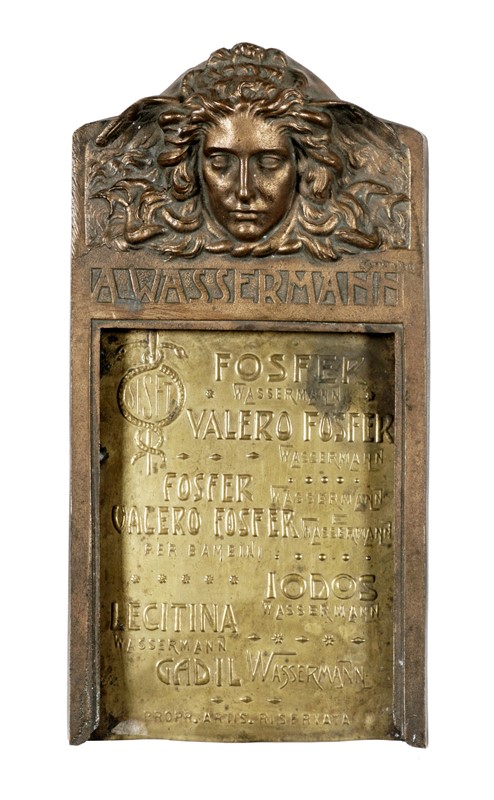 A. WASSERMANN
FOSFER
WASSERMANN
VALERO FOSFER
WASSERMANN
FOSFER WASSERMANN
VALERO FOSFER WASSERMANN
PER BAMBINI
IODOS
WASSERMANN
LECITINA
WASSERMANN
GADIL WASSERMANN
PROPR. ARTIS. RISERVATA